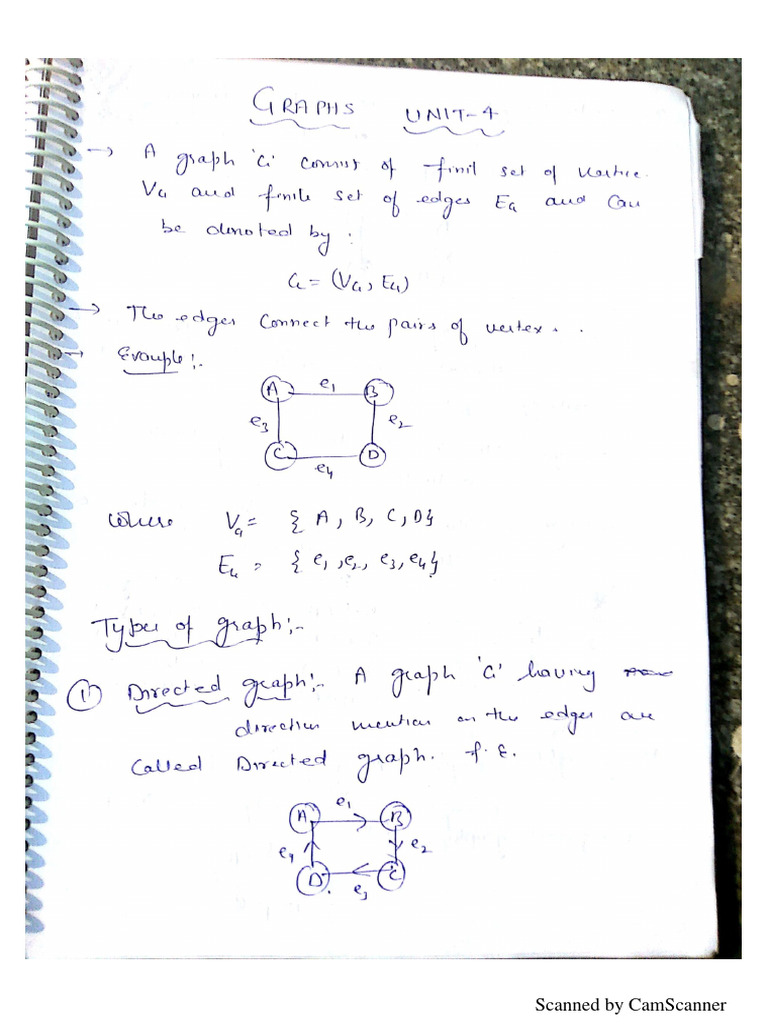 GRAPHS UNIT-4
→ A graph 'G' consist of finit set of vertice.
VG and finite set of edges EG and can
be denoted by :
G = (VG, EG)
→ The edges connect the pairs of vertex.
→ Example :-
A e1 B
e3 e2
C D
e4
where VG = { A, B, C, D}
EG = { e1, e2, e3, e4}
Types of graph :-
① Directed graph :- A graph 'G' having
direction mention on the edges are
called Directed graph. f. E.
e1
A B
e4 e2
D C
e3
Scanned by CamScanner